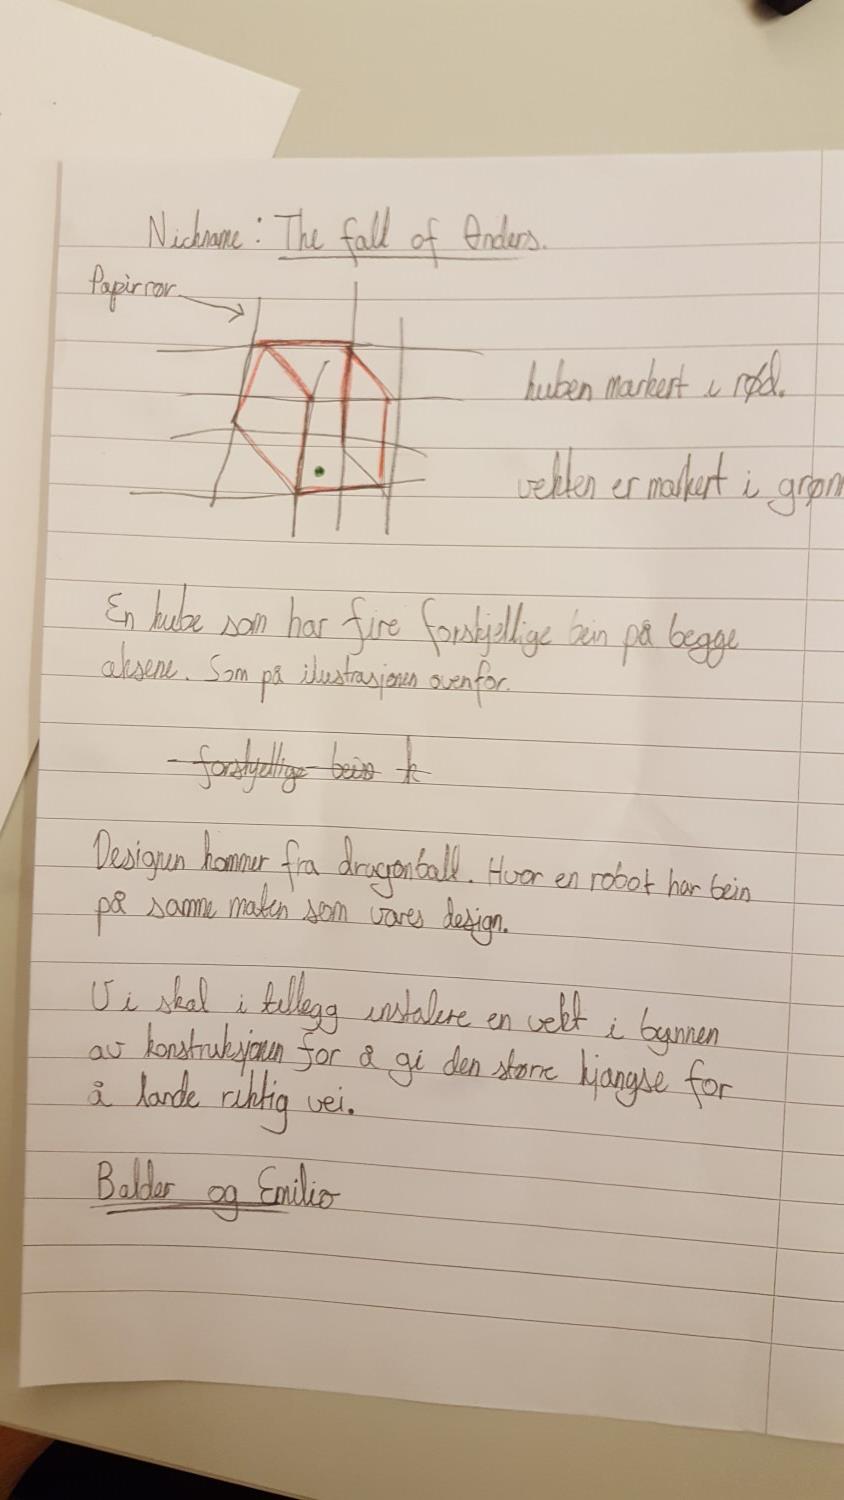 Nickname: The fall of Anders.
Papirrør
kuben markert i rød.
vekten er markert i grønn
En kube som har fire forskjellige bein på begge
aksene. Som på ilustrasjonen ovenfor.
forskjellige bein k
Designen kommer fra dragonball. Hvor en robot har bein
på samme måten som vares design.
Vi skal i tillegg instalere en vekt i bynnen
av konstruksjonen for å gi den større kjangse for
å lande riktig vei.
Balder og Emilio